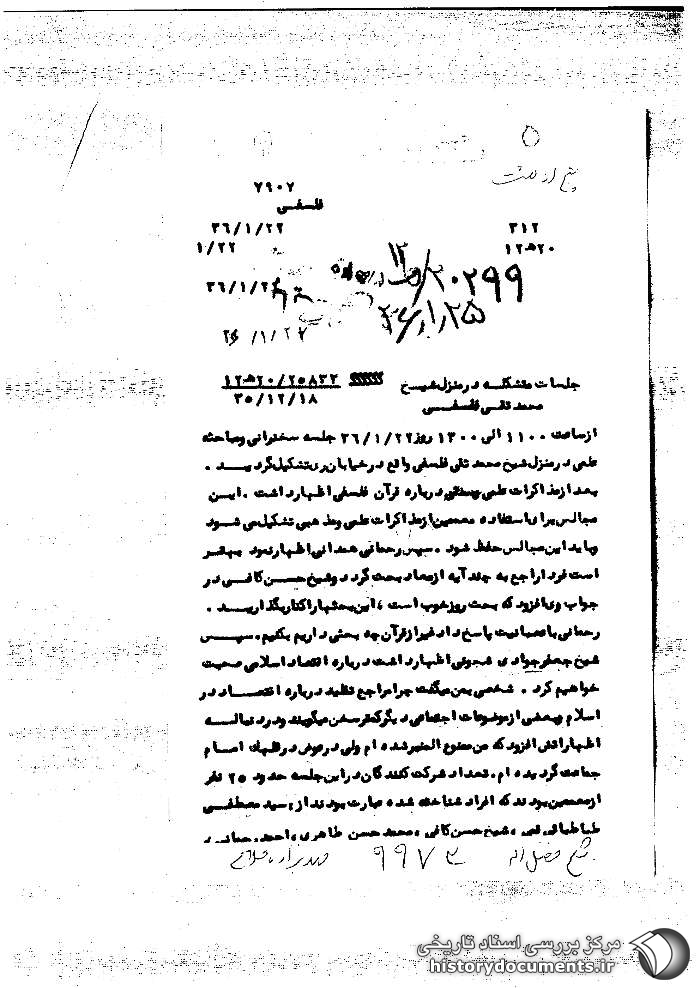 ۷۹۰۷
فلسفی
۳۱۲
۳۶/۱/۲۲
۲۰ﻫ۱۲
۱/۲۲
۲۰۲۹۹
۳۶/۱/۲۴
۲۵
۳۶/۱/۲۴
جلسات متشکله در منزل شیخ
محمد تقی فلسفی
۲۵۸۳۲/۲۰ﻫ۱۲
۳۵/۱۲/۱۸
از ساعت ۱۱۰۰ الی ۱۳۰۰ روز ۳۶/۱/۲۲ جلسه سخنرانی و مباحثه
علمی در منزل شیخ محمد تقی فلسفی واقع در خیابان ری تشکیل گردید .
بعد از مذاکرات علمی درباره قرآن فلسفی اظهار داشت . ایـن
مجالس برای استفاده معممین از مذاکرات علمی و مذهبی تشکیل می شـود
و باید این مجالس حفظ شود . سپس رحمانی همدانی اظهار نمود بهتـر
است فردا راجع به چند آیه از معاد بحث گردد و شیخ حسـن کافـی در
جواب وی افزود که بحث روز خوب است ، این بحثها را کنار بگذاریـد .
رحمانی با عصبانیت پاسخ داد غیر از قرآن چه بحثی داریم بکنیم . سپـس
شیخ جعفر جوادی شجونی اظهار داشت درباره اقتصاد اسلامی صحبت
خواهیم کرد . شخصی بمن میگفت چرا مراجع تقلید درباره اقتصـاد در
اسلام و بعضی از موضوعات اجتماعی دیگر کمتر سخن میگویند و در دنبالـه
اظهاراتش افزود که من ممنوع المنبر شده ام ولی در عوض در قلهك امـام
جماعت گردیده ام . تعداد شرکت کنندگان در این جلسه حدود ۲۵ نفر
از معممین بودند که افراد شناخته شده عبارت بودند از ، سید مصطفـی
طباطبائی قمی ، شیخ حسن کافی ، محمد حسن طاهری ، احمد
شیخ فضل اله
۹۹۷۳
مهدیزاده محلاتی
مرکز بررسی اسناد تاریخی
historydocuments.ir